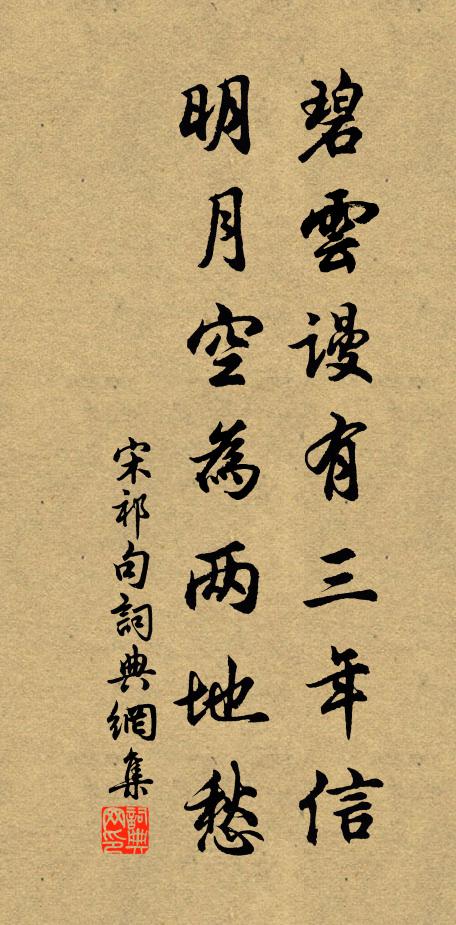 碧雲謾有三年信
明月空為两地愁
宋祁句詞典網集
詞典网印